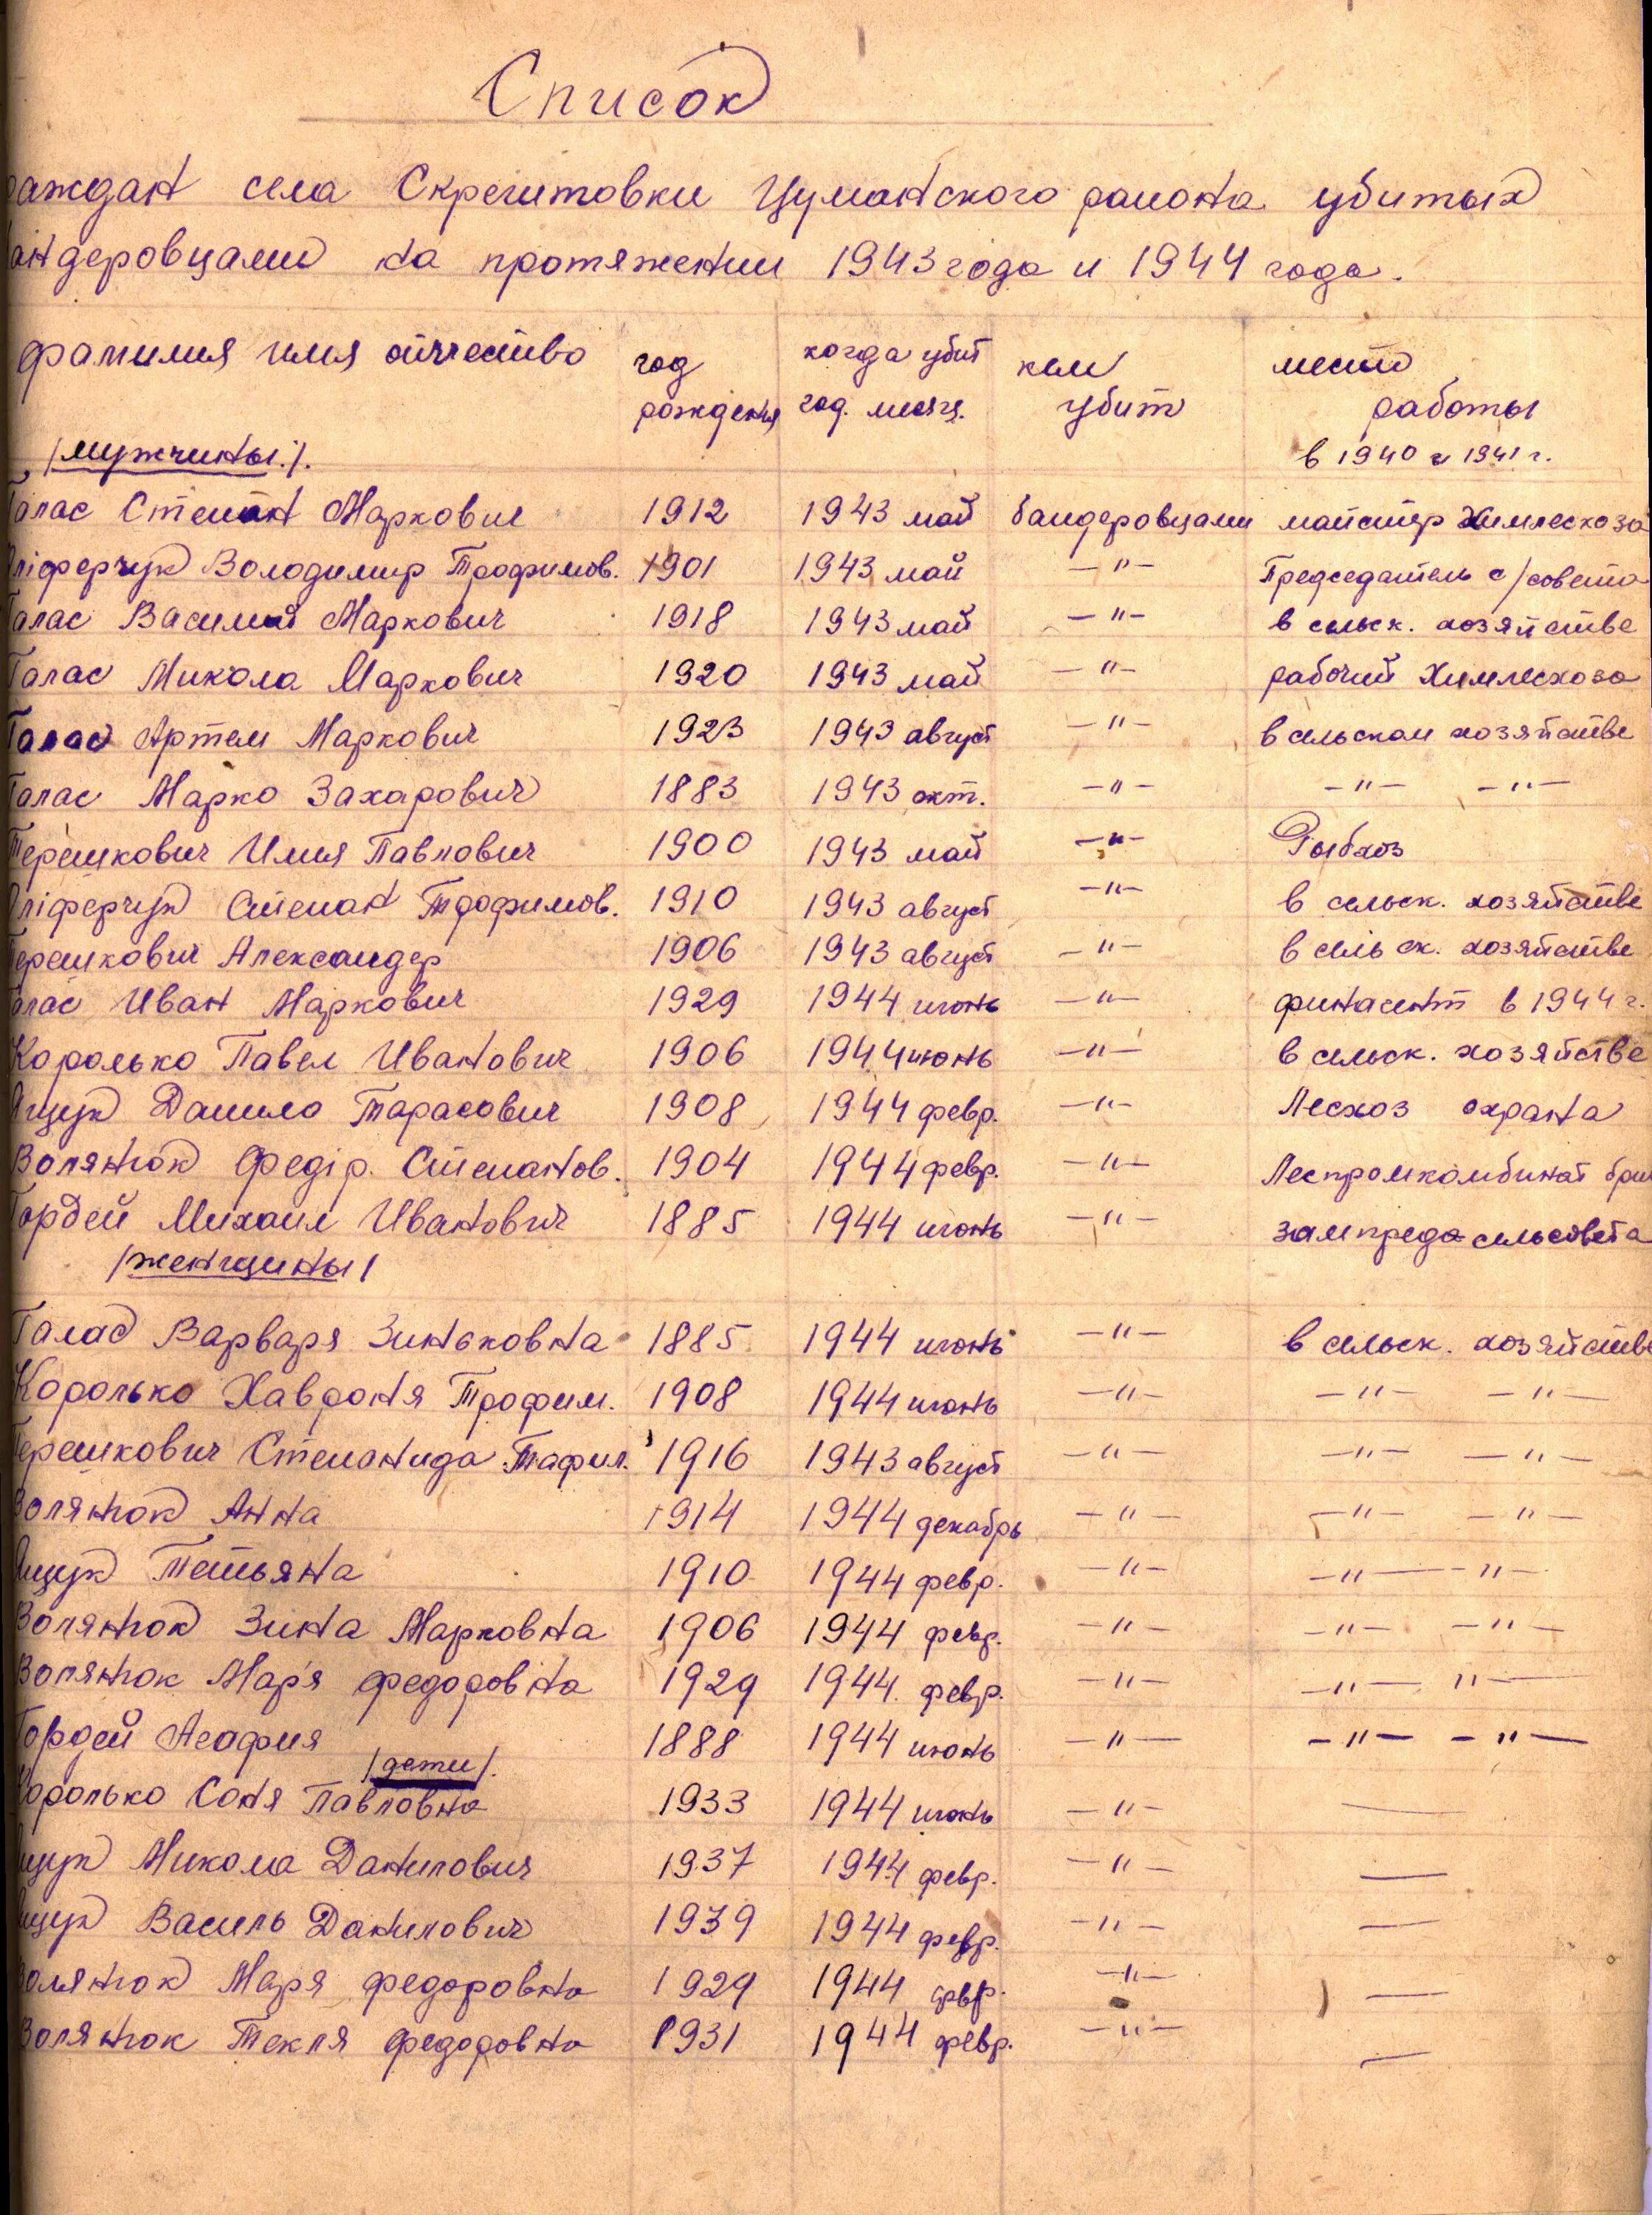 Список
раждан села Скрегитовки Цуманского района убитых
андеровцами на протяжении 1943 года и 1944 года.
фамилия имя отчество год рождения когда убит год. месяц. кем убит место работы в 1940 и 1941 г.
/мужчины./.
Галас Степан Маркович 1912 1943 май бандеровцами майстер Химлесхоза
ліферчук Володимир Трофимов. 1901 1943 май —"— Председатель с/совета
Галас Василий Маркович 1918 1943 май —"— в сельск. хозяйстве
Галас Микола Маркович 1920 1943 май —"— рабочий Химлесхоза
Галас Артем Маркович 1923 1943 август —"— в сельском хозяйстве
Галас Марко Захарович 1883 1943 окт. —"— —"— —"—
Терешкович Илия Павлович 1900 1943 май —"— Рыбхоз
ліферчук Степан Трофимов. 1910 1943 август —"— в сельск. хозяйстве
Терешкович Александер 1906 1943 август —"— в сельск. хозяйстве
Галас Иван Маркович 1929 1944 июнь —"— финагент в 1944 г.
Королько Павел Иванович 1906 1944 июнь —"— в сельск. хозяйстве
Ящук Данило Тарасович 1908 1944 февр. —"— Лесхоз охрана
Волянюк Федір. Степанов. 1904 1944 февр. —"— Леспромкомбинат бри
Гордей Михаил Иванович 1885 1944 июнь —"— зампреда сельсовета
/женщины/
Галас Варваря Зиньковна 1885 1944 июнь —"— в сельск. хозяйстве
Королько Хавроня Трофим. 1908 1944 июнь —"— —"— —"—
Терешкович Степанида Тафил. 1916 1943 август —"— —"— —"—
Волянюк Анна 1914 1944 декабрь —"— —"— —"—
Ящук Тетьяна 1910 1944 февр. —"— —"— —"—
Волянюк Зина Марковна 1906 1944 февр. —"— —"— —"—
Волянюк Мар'я Федоровна 1929 1944 февр. —"— —"— "—
Гордей Агафия 1888 1944 июнь —"— —"— —"—
/дети/.
Королько Соня Павловна 1933 1944 июнь —"— —
Ящук Микола Данилович 1937 1944 февр. —"— —
Ящук Василь Данилович 1939 1944 февр. —"— —
Волянюк Маря Федоровна 1929 1944 февр. —"— —
Волянюк Текля Федоровна 1931 1944 февр. —"— —